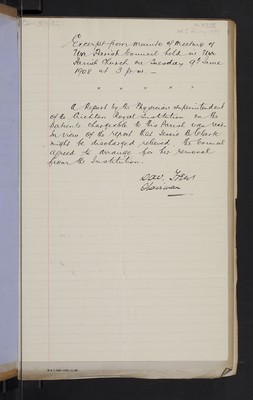 Excerpt from minute of Meeting of
Urr Parish Council held in Urr
Parish Church on Tuesday 9th June
1908 at 3 p.m. —
A Report by the Physician Superintendent
of the Crichton Royal Institution on the
Patients chargeable to this Parish was read.
In view of the report that Jessie B. Clark
might be discharged relieved the Council
agreed to arrange for her removal
from the Institution.
Chairman